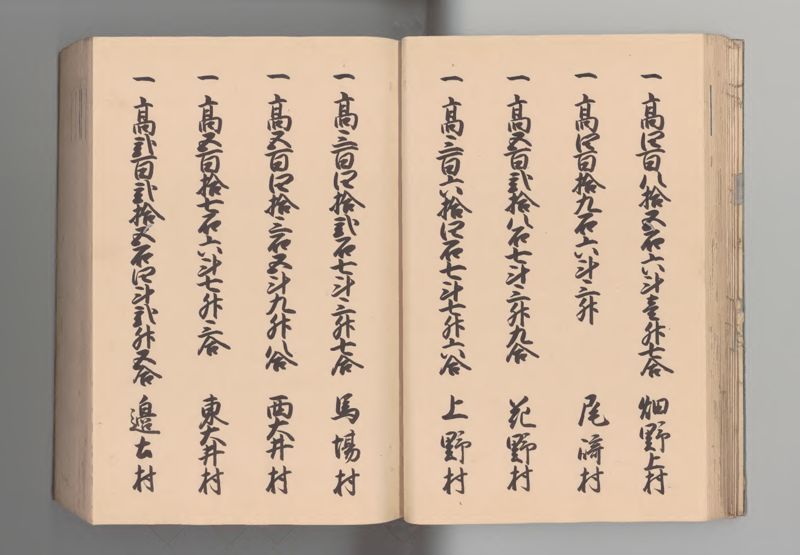 一 高四百八拾五石六斗壱升七合 畑野上村
一 高四百拾九石六斗三升 尾崎村
一 高五百弐拾八石七斗三升九合 花野村
一 高三百六拾四石七斗七升六合 上野村
一 高三百四拾弐石七斗三升七合 馬場村
一 高五百四拾三石五斗九升八合 西大井村
一 高五百拾七石六斗七升三合 東大井村
一 高弐百弐拾五石四斗弐升五合 邉土村